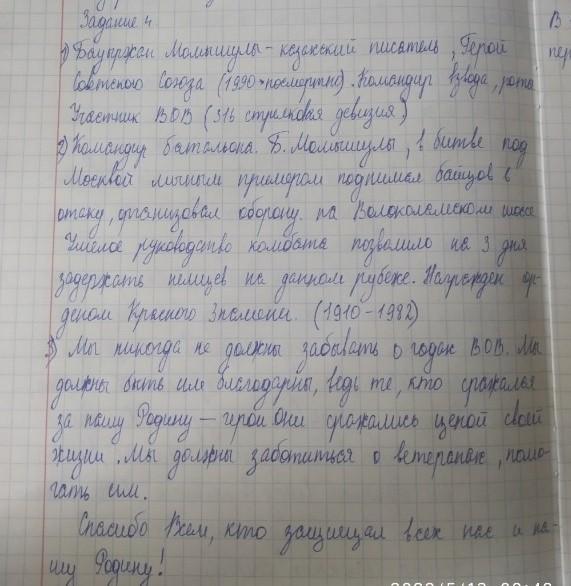 Задание 4
В
1) Бауыржан Момышулы - казахский писатель, Герой
пер
Советского Союза (1990 посмертно). Командир взвода, рота
Участник ВОВ (316 стрелковая девизия)
2) Командир батальона. Б. Момышулы, в битве под
Москвой личным примером поднимал байцов в
атаку, организовал оборону. на Волоколамском шоссе
Умелое руководство комбата позволило на 3 дня
задержать немцев на данном рубеже. Награжден ор-
деном Красного Знамени. (1910-1982)
3) Мы никогда не должны забывать о годах ВОВ. Мы
должны быть им благодарны, ведь те, кто сражался
за нашу Родину - герои Они сражались ценой своей
жизни. Мы должны заботиться о ветеранах, помо-
гать им.
Спасибо Всем, кто защищал всех нас и на-
шу Родину!